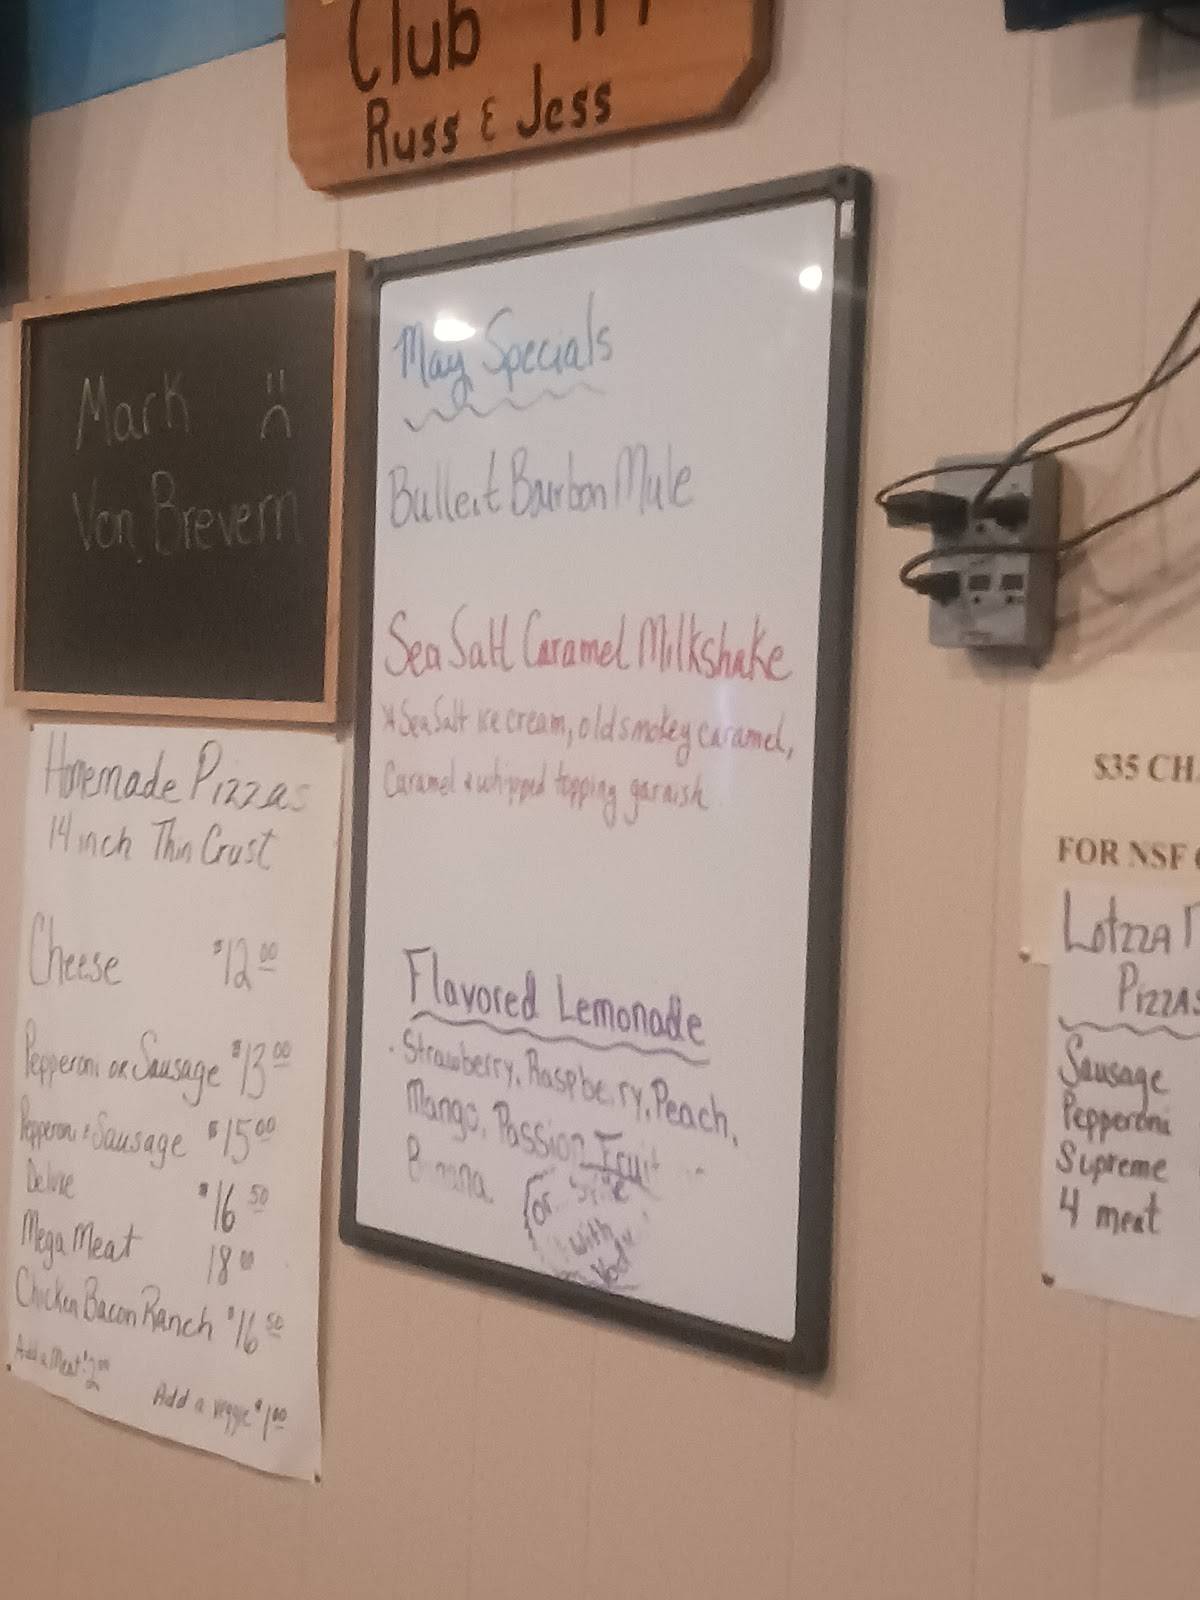 Club
Russ & Jess
Mark
Von Brevern
May Specials
Bulleit Bourbon Mule
Sea Salt Caramel Milkshake
*Sea Salt ice cream, old smokey caramel,
Caramel & whipped topping garnish
Flavored Lemonade
Strawberry, Raspberry, Peach,
Mango, Passion Fruit
Banana
or
with
Homemade Pizzas
14 inch Thin Crust
Cheese $12.00
Pepperoni or Sausage $13.00
Pepperoni & Sausage $15.00
Deluxe $16.50
Mega Meat 18.00
Chicken Bacon Ranch $16.50
Add a Meat $2.00
Add a veggie $1.00
$35
FOR NSF
Lotzza
Pizzas
Sausage
Pepperoni
Supreme
4 meat